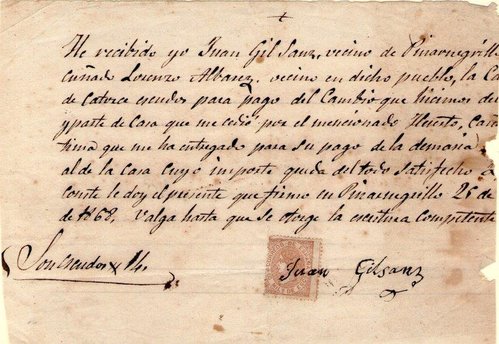 He recibido yo Juan Gil Sanz, vecino de Pinarnegrillo
cuñado Lorenzo Albarez, vecino en dicho pueblo, la Ca
de Catorce escudos para pago del Cambio que hicimos de
parte de Casa que me cedió por el mencionado Huerto, Ca
tima que me ha entregado para su pago de la demasia
al de la Casa cuyo importe queda del todo satisfecho
conste le doy el presente que firmo en Pinarnegrillo 26 de
de 1868. Valga hasta que se otorge la escritura competente
Son escudos 14.
Juan Gilsanz